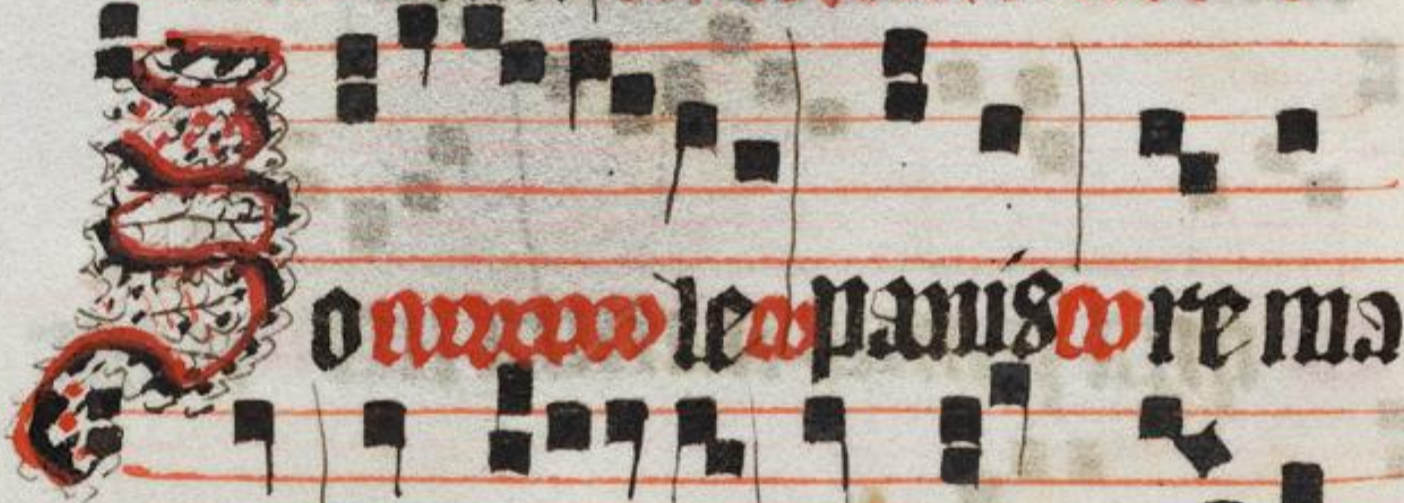 Sole panis re ma